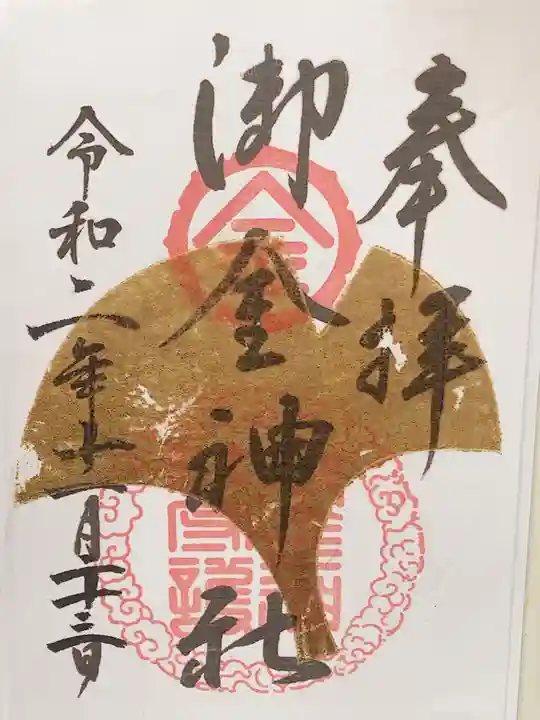 奉拝
御金神社
令和二年十一月二十三日